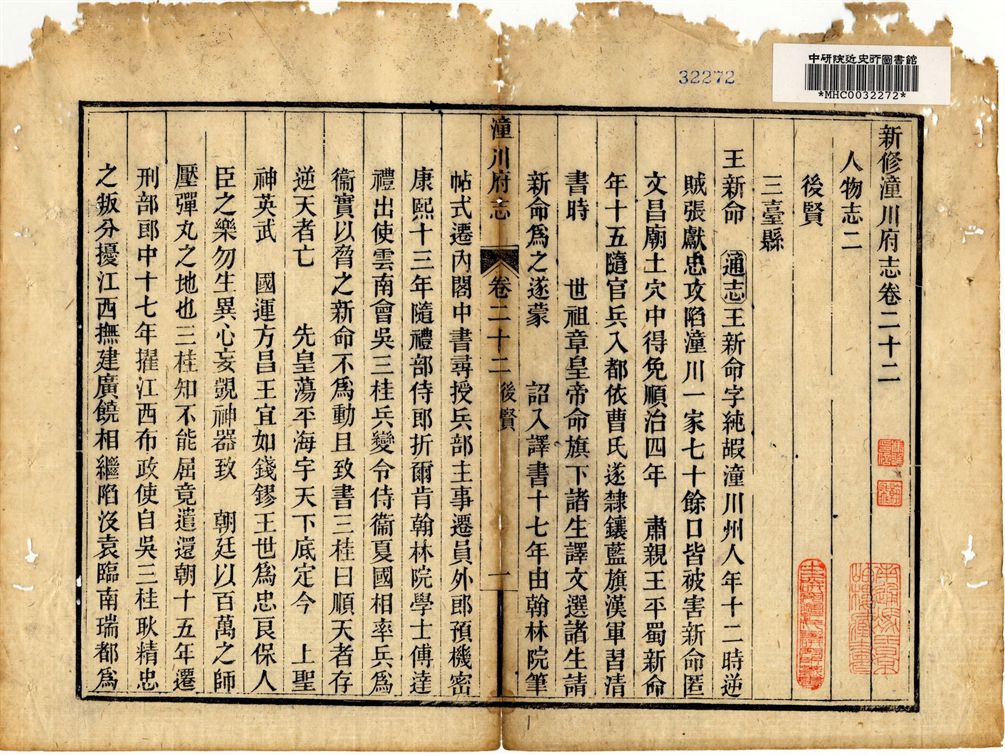 32272
中研院近史所圖書館
*MHC0032272*
新修潼川府志卷二十二
人物志二
後賢
三臺縣
王新命 通志 王新命字純嘏潼川州人年十二時逆
賊張獻忠攻陷潼川一家七十餘口皆被害新命匿
文昌廟土穴中得免順治四年 肅親王平蜀新命
年十五隨官兵入都依曹氏遂隸鑲藍旗漢軍習清
書時 世祖章皇帝命旗下諸生譯文選諸生請
新命爲之遂蒙 詔入譯書十七年由翰林院筆
潼川府志 卷二十二 後賢 一
帖式遷內閣中書尋授兵部主事遷員外郎預機密
康熙十三年隨禮部侍郎折爾肯翰林院學士傅達
禮出使雲南會吳三桂兵變令侍衞夏國相率兵爲
衞實以脅之新命不爲動且致書三桂曰順天者存
逆天者亡 先皇蕩平海宇天下底定今 上聖
神英武 國運方昌王宜如錢鏐王世爲忠良保人
臣之樂勿生異心妄覬神器致 朝廷以百萬之師
壓彈丸之地也三桂知不能屈竟遣還朝十五年遷
刑部郎中十七年擢江西布政使自吳三桂耿精忠
之叛分擾江西撫建廣饒相繼陷沒袁臨南瑞都爲